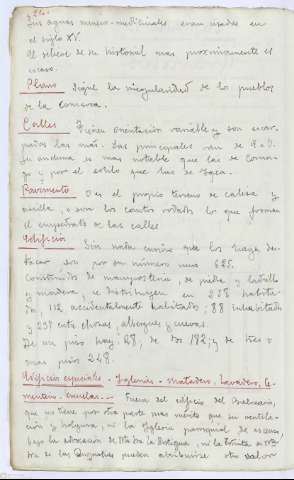 Sus aguas minero-medicinales eran usadas en
el siglo XV.
El relieve de su historial mas proximamente es
escaso.
Plano Sigue la irregularidad de los pueblos
de la comarca.
Calles Tienen orientación variable y son escar-
padas las mas. Las principales van de
Su anchura es mas notable que las de
y por el estilo que las de Jaca.
Pavimento Es el propio terreno de caliza y
arcilla, o son los cantos rodados lo que forman
el empedrado de las calles
Edificios Sin nota encima que los haga des-
tacar son por su número unos 685.
Construidos de mampostería, de piedra y ladrillo
y madera, se distribuyen en 258 habita-
do, 112 accidentalmente habitado; 88 inhabitado
y 237 entre chozas, albergues y cuevas.
De un piso hay: 28, de dos 182; y de tres o
mas pisos 248.
Edificios especiales - Iglesias - matadero, Lavadero, Ce-
menterio, escuelas... Fuera del edificio del Balneario,
que no tiene por otra parte mas mérito que su ventila-
ción y holgura, ni la Iglesia parroquial de escaso,
bajo la advocación de Ntra Sra la Antigua, ni la Ermita de Ntra
Sra de las pueden atribuirse otro valor